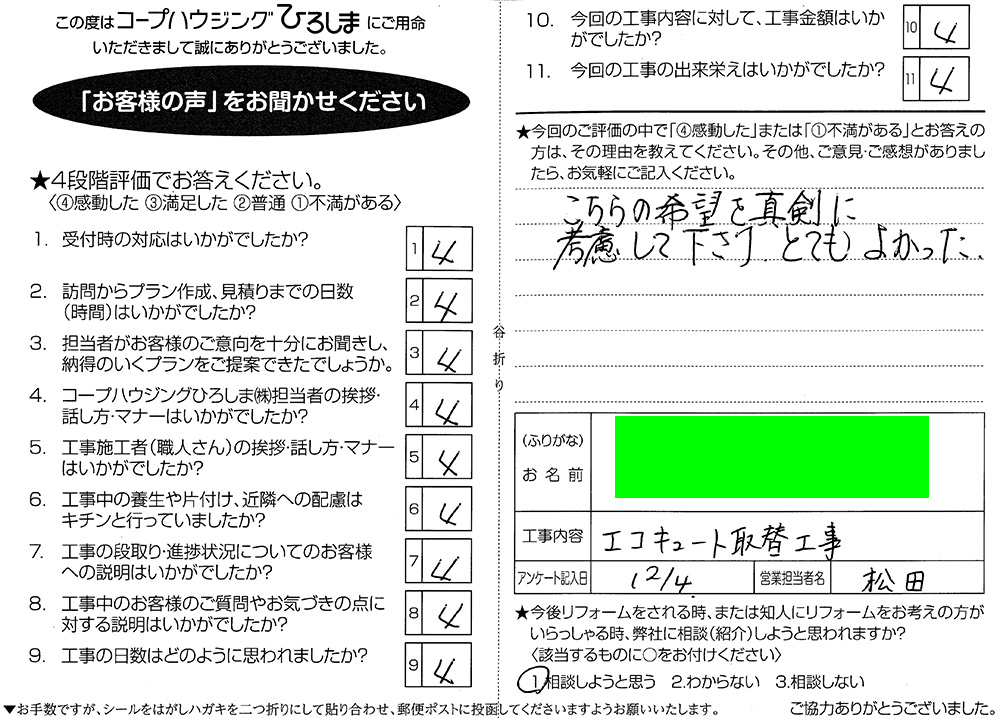 この度はコープハウジングひろしまにご用命
いただきまして誠にありがとうございました。
「お客様の声」をお聞かせください
★4段階評価でお答えください。
〈④感動した ③満足した ②普通 ①不満がある〉
1. 受付時の対応はいかがでしたか? 1 4
2. 訪問からプラン作成、見積りまでの日数
(時間)はいかがでしたか? 2 4
3. 担当者がお客様のご意向を十分にお聞きし、
納得のいくプランをご提案できたでしょうか。 3 4
4. コープハウジングひろしま㈱担当者の挨拶・
話し方・マナーはいかがでしたか? 4 4
5. 工事施工者(職人さん)の挨拶・話し方・マナー
はいかがでしたか? 5 4
6. 工事中の養生や片付け、近隣への配慮は
キチンと行っていましたか? 6 4
7. 工事の段取り・進捗状況についてのお客様
への説明はいかがでしたか? 7 4
8. 工事中のお客様のご質問やお気づきの点に
対する説明はいかがでしたか? 8 4
9. 工事の日数はどのように思われましたか? 9 4
▼お手数ですが、シールをはがしハガキを二つ折りにして貼り合わせ、郵便ポストに投函してくださいますようお願いいたします。
谷折り
10. 今回の工事内容に対して、工事金額はいか
がでしたか? 10 4
11. 今回の工事の出来栄えはいかがでしたか? 11 4
★今回のご評価の中で「④感動した」または「①不満がある」とお答えの
方は、その理由を教えてください。その他、ご意見・ご感想がありまし
たら、お気軽にご記入ください。
こちらの希望を真剣に
考慮して下さり、とてもよかった。
(ふりがな)
お名前
工事内容 エコキュート取替工事
アンケート記入日 12/4 営業担当者名 松田
★今後リフォームをされる時、または知人にリフォームをお考えの方が
いらっしゃる時、弊社に相談(紹介)しようと思われますか?
〈該当するものに○をお付けください〉
1.相談しようと思う 2.わからない 3.相談しない
ご協力ありがとうございました。